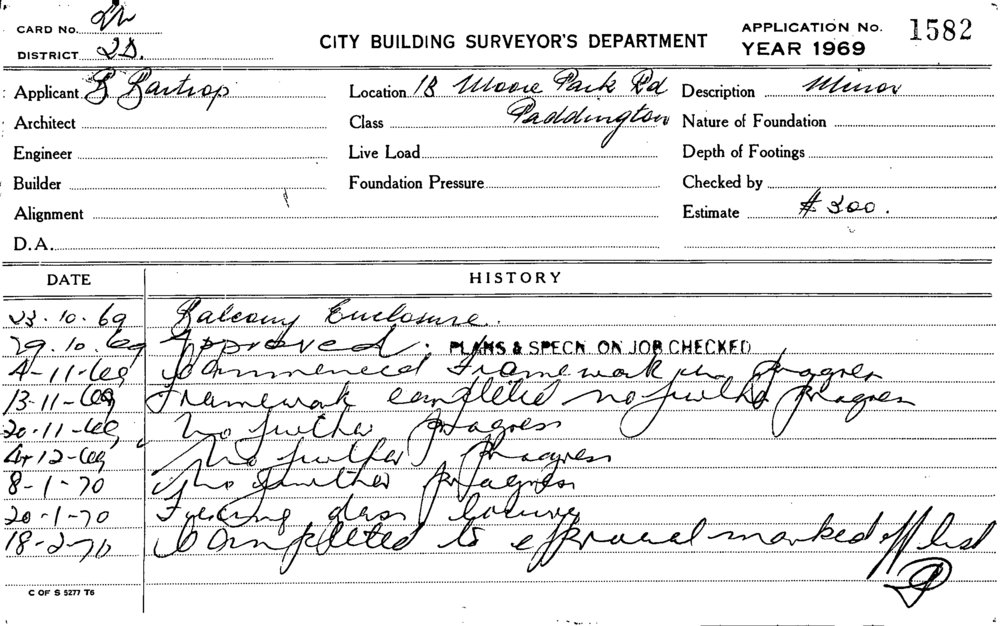 CARD No. 2A
DISTRICT 2D.
CITY BUILDING SURVEYOR'S DEPARTMENT
APPLICATION No. 1582
YEAR 1969
Applicant B Bartrop
Location 18 Moore Park Rd
Description Minor
Architect
Class Paddington
Nature of Foundation
Engineer
Live Load
Depth of Footings
Builder
Foundation Pressure
Checked by
Alignment
Estimate $ 300.
D.A.
DATE HISTORY
23.10.69 Balcony Enclosure.
29.10.69 Approved. PLANS & SPECN. ON JOB CHECKED
4-11-69 Commenced Framework in Progress
13-11-69 Framework completed no further progress
20-11-69 No further progress
4-12-69 No further Progress
8-1-70 No further progress
20-1-70
18-2-70 Completed to approval marked off list
C OF S 5277 T6